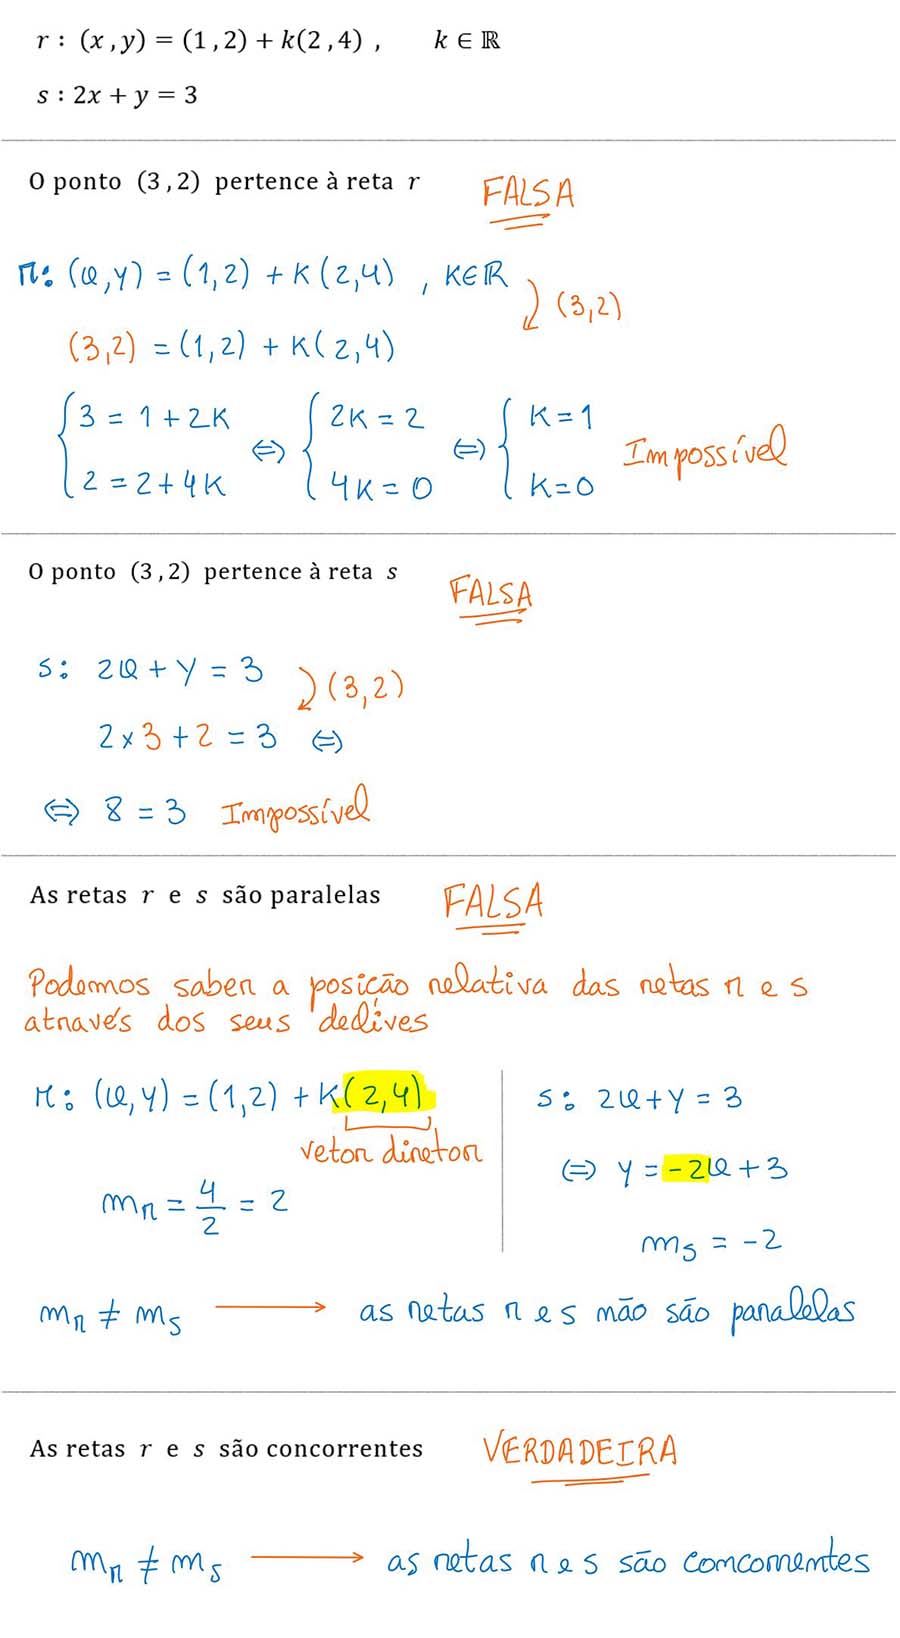 r : (x , y) = (1 , 2) + k(2 , 4) , k ∈ ℝ
s : 2x + y = 3
O ponto (3 , 2) pertence à reta r FALSA
r: (x,y) = (1,2) + K(2,4) , K∈ℝ
(3,2)
(3,2) = (1,2) + K(2,4)
{3 = 1 + 2K ⇔ {2K = 2 ⇔ {K = 1
{2 = 2 + 4K {4K = 0 {K = 0 Impossível
O ponto (3 , 2) pertence à reta s FALSA
s: 2x + y = 3
(3,2)
2 × 3 + 2 = 3 ⇔
⇔ 8 = 3 Impossível
As retas r e s são paralelas FALSA
Podemos saber a posição relativa das retas r e s
através dos seus declives
r: (x,y) = (1,2) + K(2,4)
vetor diretor
m_r = 4/2 = 2
s: 2x + y = 3
⇔ y = -2x + 3
m_s = -2
m_r ≠ m_s → as retas r e s não são paralelas
As retas r e s são concorrentes VERDADEIRA
m_r ≠ m_s → as retas r e s são concorrentes